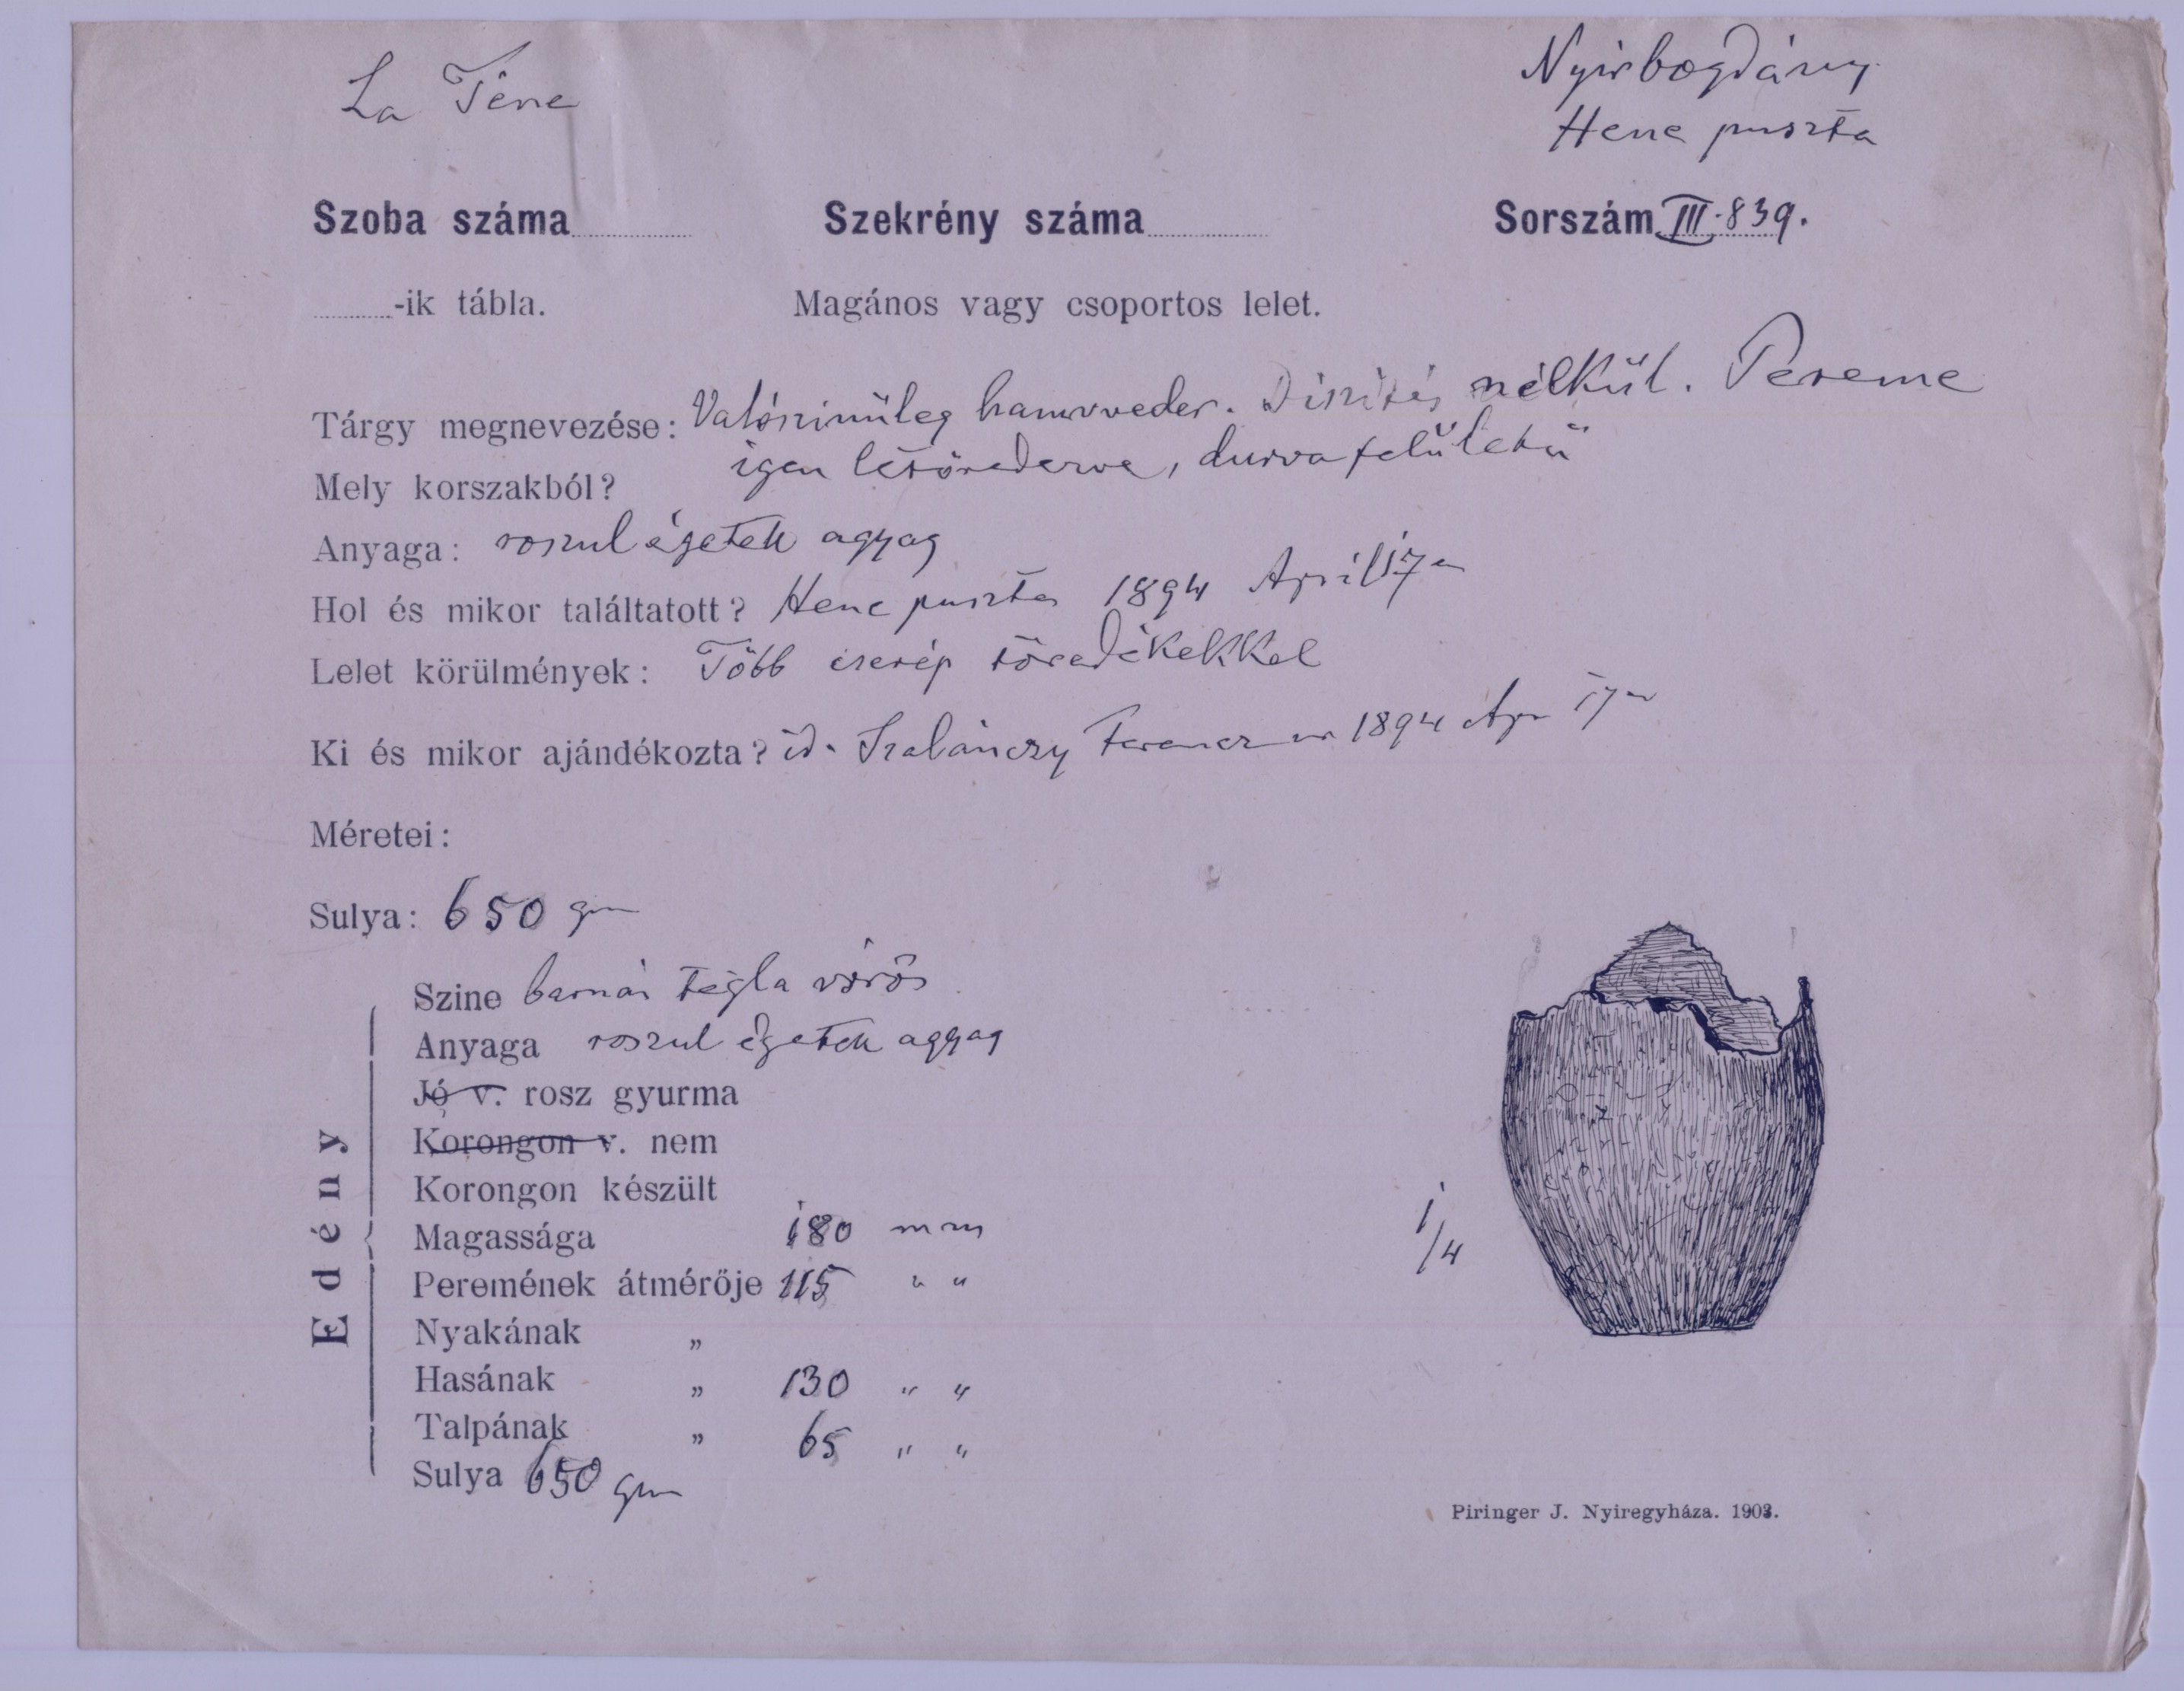 La Téne
Nyirbogdány
Hene puszta
Szoba száma
Szekrény száma
Sorszám III. 839.
-ik tábla.
Magános vagy csoportos lelet.
Tárgy megnevezése: Valószinüleg hamvveder. Diszités nélkül. Pereme
igen letöredezve, durva felületü
Mely korszakból?
Anyaga: roszul égetett agyag
Hol és mikor találtatott? Hene puszta 1894 April 17 én
Lelet körülmények: Több cserép töredékekkel
Ki és mikor ajándékozta? id. Szalánczy Ferencz ur 1894 Apr 17 én
Méretei:
Sulya: 650 gm
Edény
Szine barnás tégla vörös
Anyaga roszul égetett agyag
Jó v. rosz gyurma
Korongon v. nem
Korongon készült
Magassága 180 mm
Peremének átmérője 115 " "
Nyakának „
Hasának „ 130 " "
Talpának „ 65 " "
Sulya 650 gm
1/4
Piringer J. Nyiregyháza. 1903.